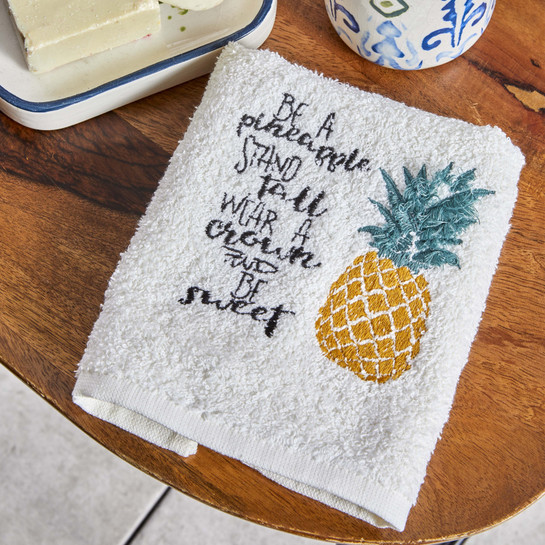 BE A
pineapple
STAND
tall
WEAR A
crown
AND
BE
sweet